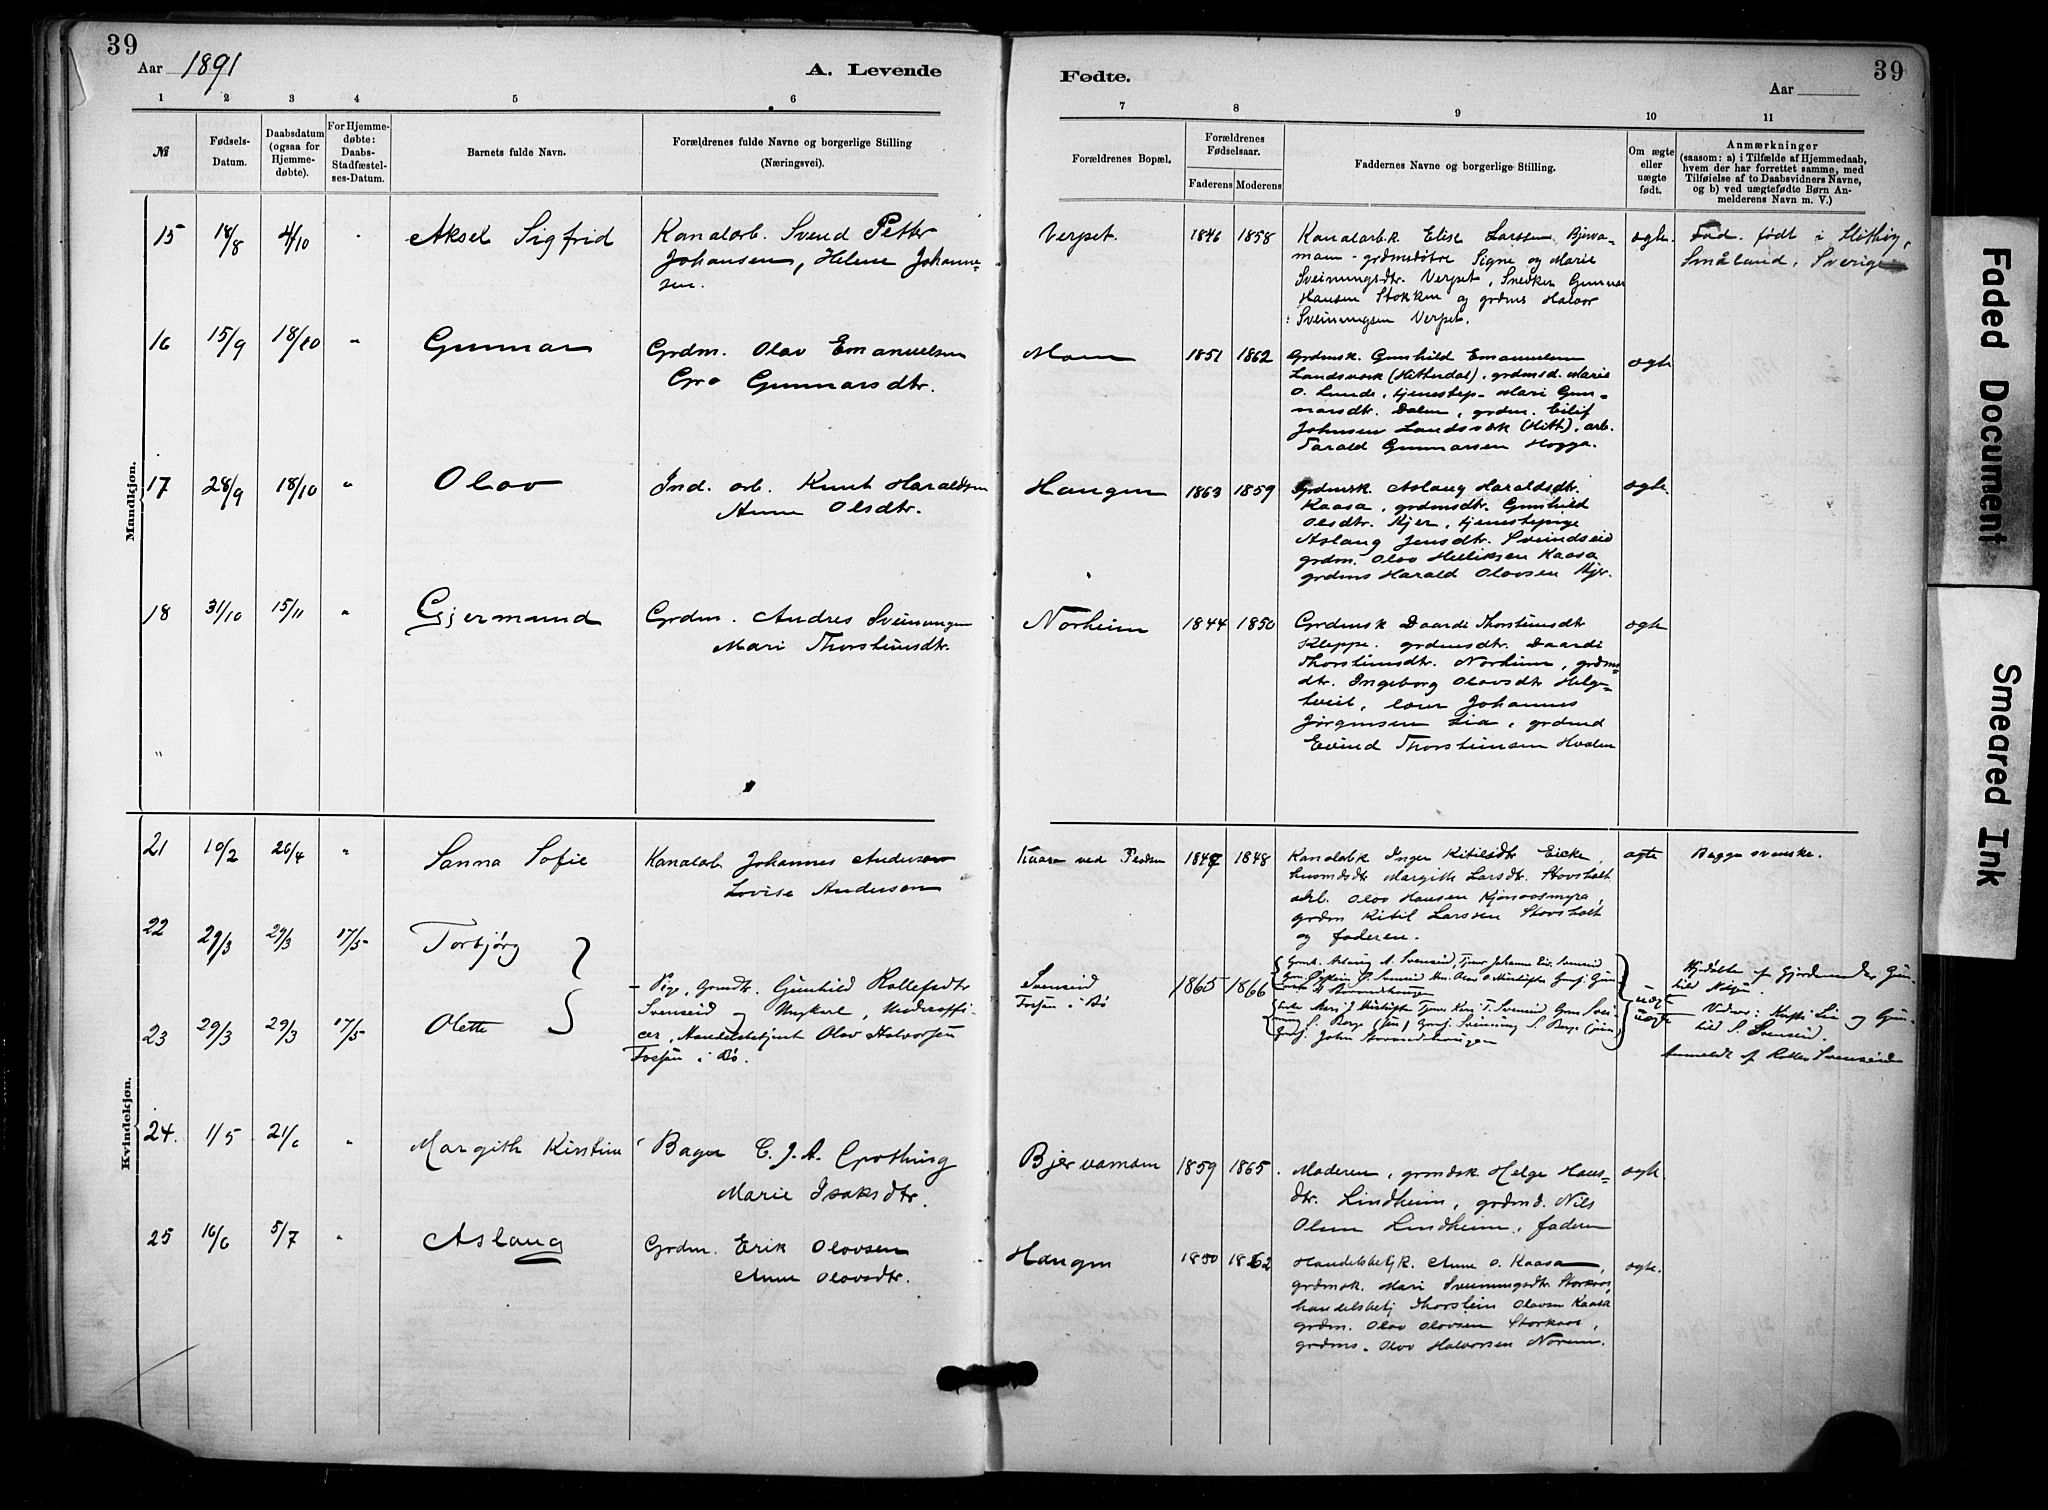 39
Aar 1891
A. Levende
Fødte.
Aar
39
1 2 3 4 5 6 7 8 9 10 11
№
Fødsels-
Datum.
Daabsdatum
(ogsaa for
Hjemme-
døbte).
For Hjemme-
døbte:
Daabs-
Stadfæstel-
ses-Datum.
Barnets fulde Navn.
Forældrenes fulde Navne og borgerlige Stilling
(Næringsvei).
Forældrenes Bopæl.
Forældrenes
Fødselsaar.
Faderens Moderens
Faddernes Navne og borgerlige Stilling.
Om ægte
eller
uægte
født.
Anmærkninger
(saasom: a) i Tilfælde af Hjemmedaab,
hvem der har forrettet samme, med
Tilføielse af to Daabsvidners Navne,
og b) ved uægtefødte Børn An-
melderens Navn m. V.)
Mandkjøn.
15 18/8 4/10 " Aksel Sigfrid
Kanalarb. Svend Petter
Johansen, Helene Johanne-
sen.
Verpet. 1846 1858
Kanalarbk. Elise Larssen Bjerva-
mann - grdmsdøtre Signe og Marie
Sveinungsdtr. Verpet, Snedker Gunnar
Hansen Stokken og grdms Halvor
Sveinungsen Verpet.
ægte.
Fad. født i
Småland, Sverige
16 15/9 18/10 " Gunnar
Grdm. Olav Emanuelsen
Gro Gunnarsdtr.
Moen 1851 1862
Grdmsk. Gunhild Emanuelsen
Landsværk (Hitterdal), grdmsd. Marie
O. Lunde, tjenestep. Mari Gun-
narsdtr. Dalen, grdm. Eilif
Johnsen Landsværk (Hitt), arb.
Tarald Gunnarsen Hogga.
ægte
17 28/9 18/10 " Olav
Ind. arb. Knut Haraldsen
Anne Olsdtr.
Haugen 1863 1859
Grdmsk. Aslaug Haraldsdtr.
Kaasa, grdmsdtr. Gunhild
Olsdtr. Kjer, tjenestepige
Aslaug Jensdtr. Sveindseid
grdm. Olov Helliksen Kaasa
grdms Harald Olovsen Kjer.
ægte.
18 31/10 15/11 " Gjermund
Grdm. Andres Sveinungsen
Mari Thorsteinsdtr.
Norheim 1844 1850
Grdmsk Daardi Thorsteinsdtr
Kleppe. grdmsdtr. Daardi
Thorsteinsdtr. Norheim, grdms-
dtr. Ingeborg Olovsdtr Helge-
tveit, lærer Johannes
Jørgensen Lia, grdmd
Eivind Thorsteinsen Hvalen
ægte
"
Kvindekjøn.
21 10/2 26/4 " Sanna Sofie
Kanalarb. Johannes Anderson
Lovise Anderson
Kaasa ved 1847 1848
Kanalarbk Inger Kitilsdtr Eicke,
husmdsdtr Margitte Larsdtr. Stovsholt
arb. Olov Hansen Kjonaasmyra,
grdm Kitil Larssen Stovsholt
og faderen.
ægte
Begge svenske.
22 29/3 29/3 17/5 Torbjørg
23 29/3 29/3 17/5 Olette
Pige, Grmdtr. Gunhild Rollefsdtr
Svenseid og Ungkarl, Underoffi-
cer, Handelsbetjent Olav Halvorsen
Fossen i Bø.
Svenseid
Fossen i Bø
1865 1866
Grmk. Aslaug A. Svenseid, Tjener Johannes Svenseid
John
uægte
uægte
Hjdøbte af Gjordemoder Gun-
hild
Vidner: Lia og Gun-
hild S. Svenseid.
Anmeldt af Rollef Svenseid
24. 1/5 21/6 " Margith Kirstine
Bager C. J. A. Grothing
Marie Isaksdtr.
Bjervamoen 1859 1865.
Moderen, grmdsk. Helge Hans-
dtr. Lindheim, grdmd. Nils
Olsen Lindheim, faderen
ægte.
25 16/6 5/7 " Aslaug
Grdm. Erik Olovsen
Anne Olovsdtr.
Haugen 1850 1862
Handelsbetjk. Anne O. Kaasa,
grdmsk. Mari Sveinungsdtr Storkaas,
handelsbetj Thorstein Olovsen Kaasa
grdm. Olov Olovsen Storkaas,
grdms. Olov Halvorsen Noreim.
ægte.
Faded Document
Smeared Ink